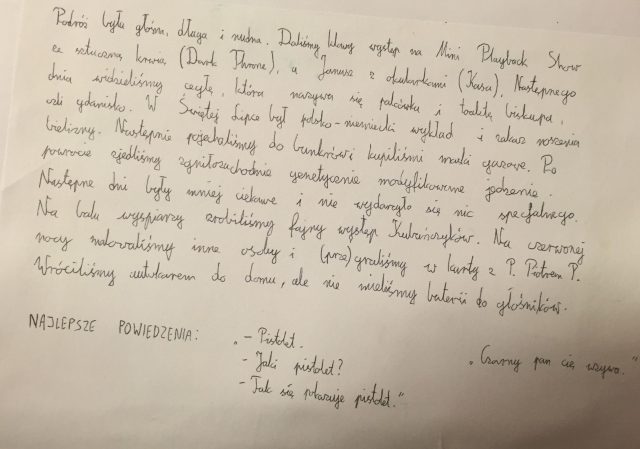 Podróż była głośna, długa i nudna. Daliśmy klawy występ na Mini Playback Show
ze sztuczną krwią (Dark Throne), a Janusz z okularkami (Kasa). Następnego
dnia widzieliśmy cegłę, która nazywa się pałacówka i toaletą biskupa,
czli gdanisko. W Świętej Lipce był polsko-niemiecki wykład i zakaz noszenia
bielizny. Następnie pojechaliśmy do bunkrów i kupiliśmi maski gazowe. Po
powrocie zjedliśmy zgniłozachodnie genetycznie modyfikowane jedzenie.
Następne dni były mniej ciekawe i nie wydarzyło się nic specjalnego.
Na balu wyspiarzy zrobiliśmy fajny występ Kubańczyków. Na czerwonej
nocy malowaliśmy inne osoby i (prze)graliśmy w karty z P. Piotrem P.
Wróciliśmy autokarem do domu, ale nie mieliśmy baterii do głośników.
NAJLEPSZE POWIEDZENIA: „- Pistolet.
- Jaki pistolet?
- Tak się pokazuje pistolet."
„Czarny pan cię wzywa."